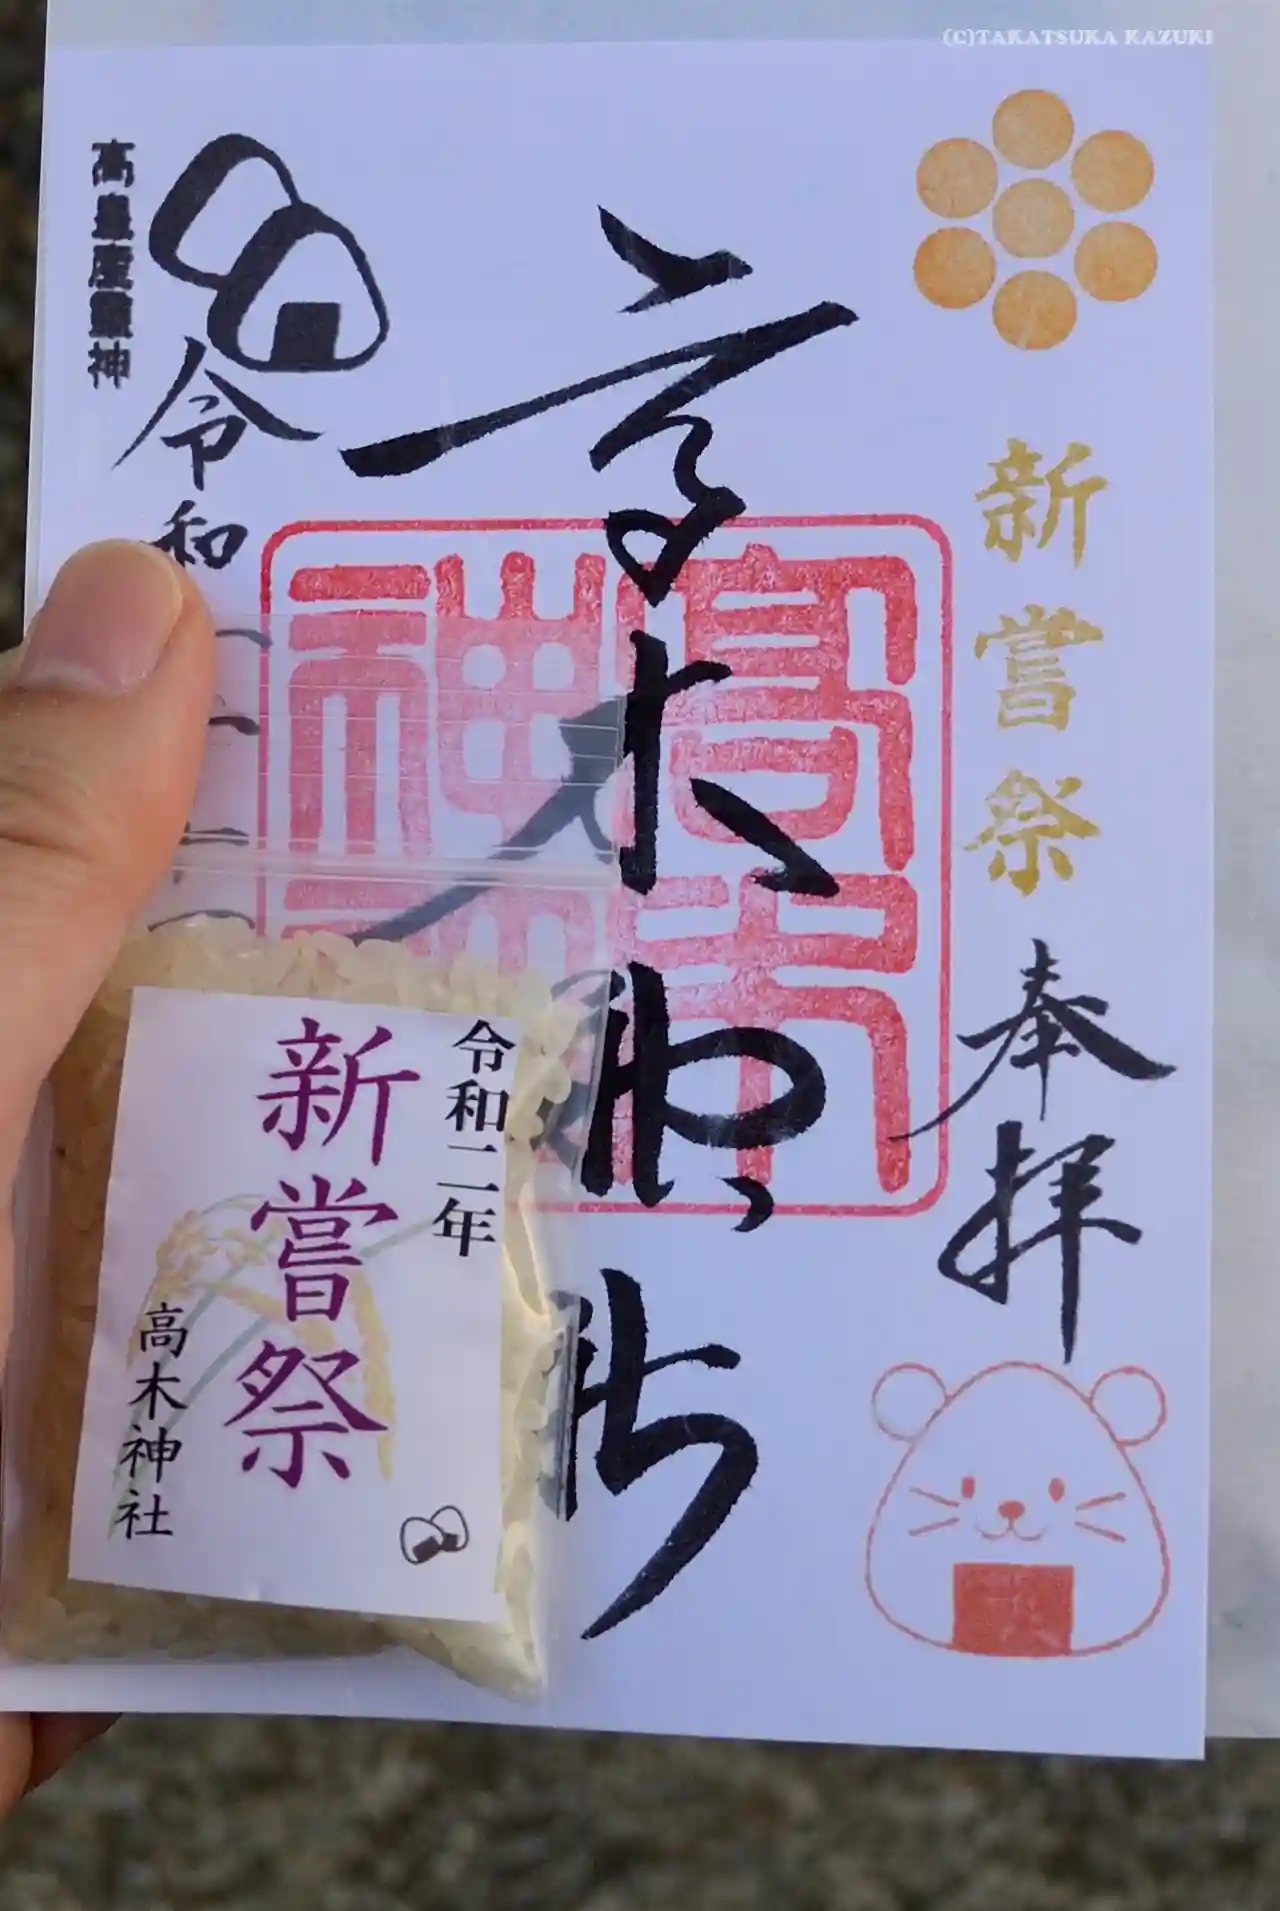 (C)TAKATSUKA KAZUKI
新嘗祭
奉拝
高木神社
高木神社
高皇産霊神
令和
令和二年
新嘗祭
高木神社